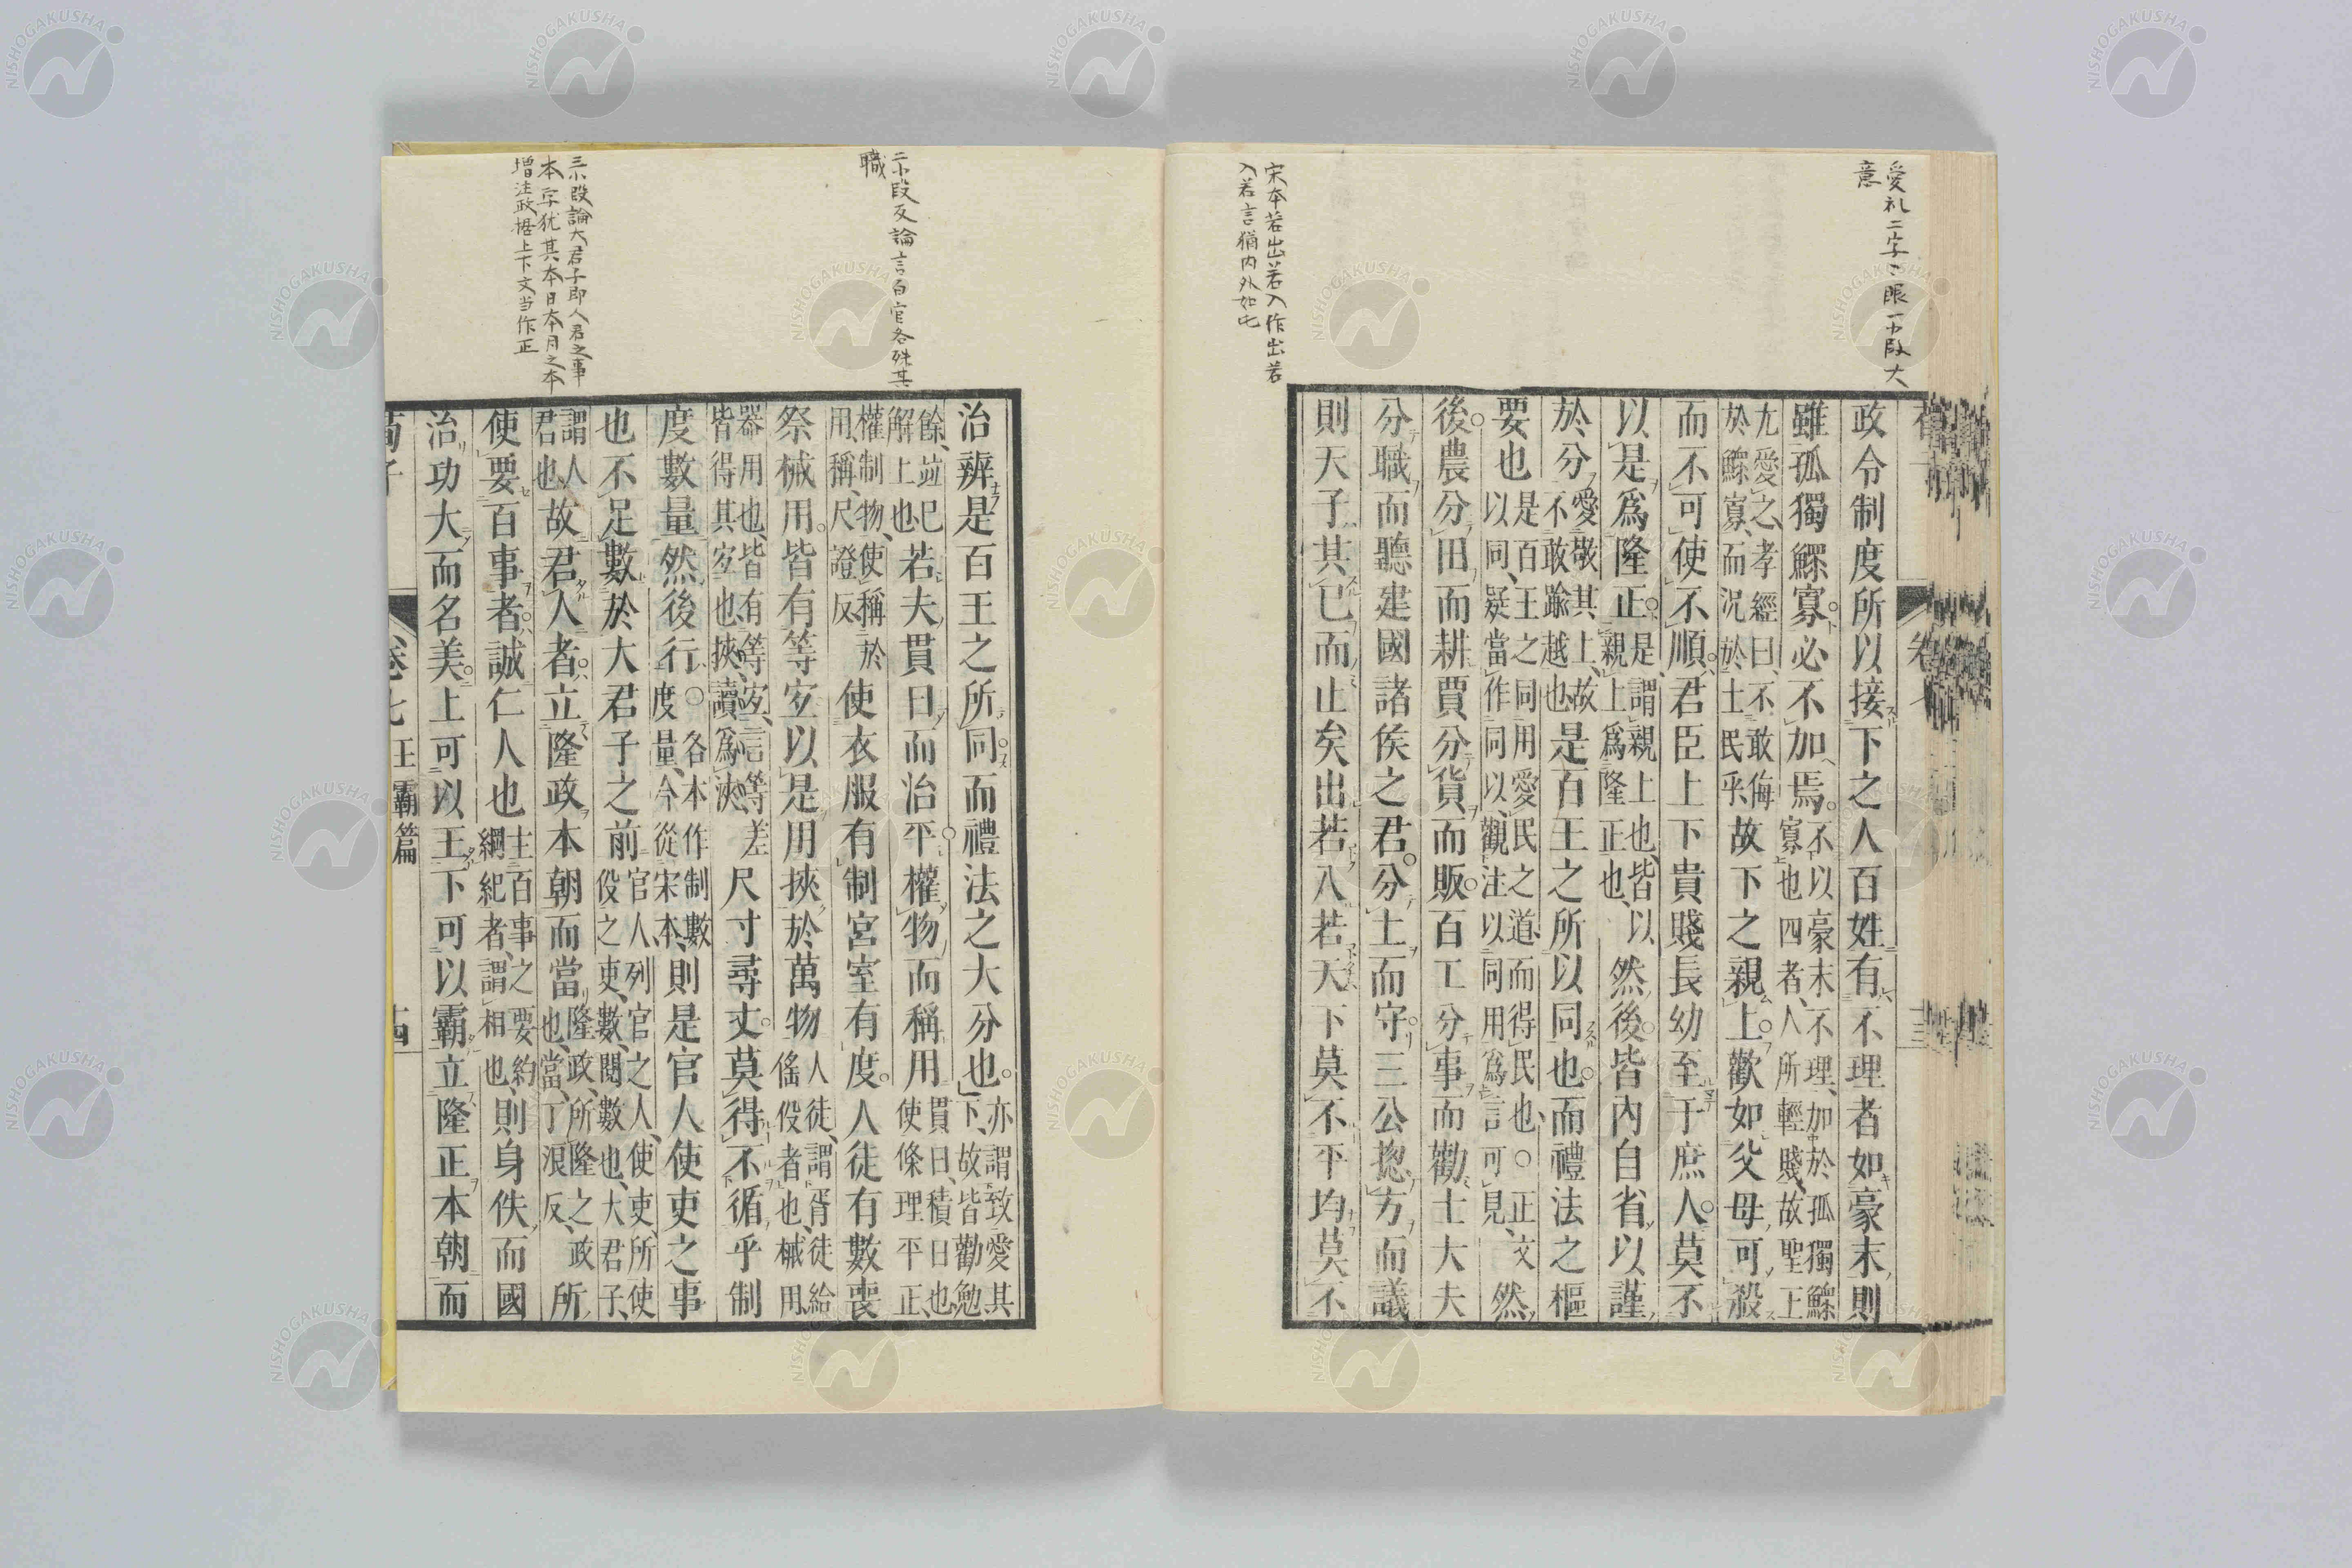 愛礼二字、眼一中段大
意
宋本若出若入作出若
入若言猶内外如此
政令制度所以接下之人百姓有不理者如豪末則
雖孤獨鰥寡必不加焉不以豪末不理加於孤獨鰥寡也四者人所輕賤故聖王
尤愛之孝經曰不敢侮於鰥寡而況於士民乎故下之親上歡如父母可殺
而不可使不順君臣上下貴賤長幼至于庶人莫不
以是爲隆正是謂親上也皆以親上爲隆正也然後皆內自省以謹
於分愛敬其上故不敢踰越也是百王之所以同也而禮法之樞
要也是百王之同用愛民之道而得民也○正文以同疑當作同以觀注以同用爲言可見然
後農分田而耕賈分貨而販百工分事而勸士大夫
分職而聽建國諸侯之君分土而守三公揔方而議
則天子共己而止矣出若入若天下莫不平均莫不
二小段反論言百官各殊其
職
三小段論大君子即人君之事
本字犹其本日本月之本
増注政据上下文当作正
治辨是百王之所同而禮法之大分也亦謂致愛其下故皆勸勉
餘竝已解上也若夫貫日而治平權物而稱用貫日積日也使條理平正
權制物使稱於用稱尺證反使衣服有制宮室有度人徒有數喪
祭械用皆有等宜以是用挾於萬物人徒謂胥徒給徭役者也械用
器用也皆有等宜言等差皆得其宜也挾讀爲浹尺寸尋丈莫得不循乎制
度數量然後行○各本作制數度量今從宋本則是官人使吏之事
也不足數於大君子之前官人列官之人使吏所使役之吏數閱數也大君子
謂人君也故君人者立隆政本朝而當隆政所隆之政也當丁浪反所
使要百事者誠仁人也主百事之要約綱紀者謂相也則身佚而國
治功大而名美上可以王下可以霸立隆正本朝而
卷七 王霸篇
十四